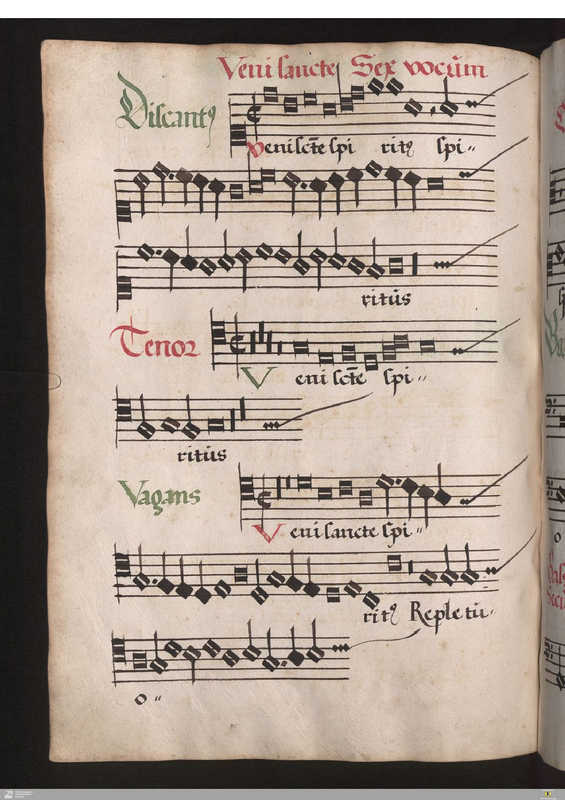 Veni sancte Sex vocūm
Discantꝰ
Veni sctē spi ritꝰ spi〃
ritūs
Tenor
Veni sctē spi〃
ritūs
Vagans
Veni sancte spi〃
ritꝰ Repletū
o〃